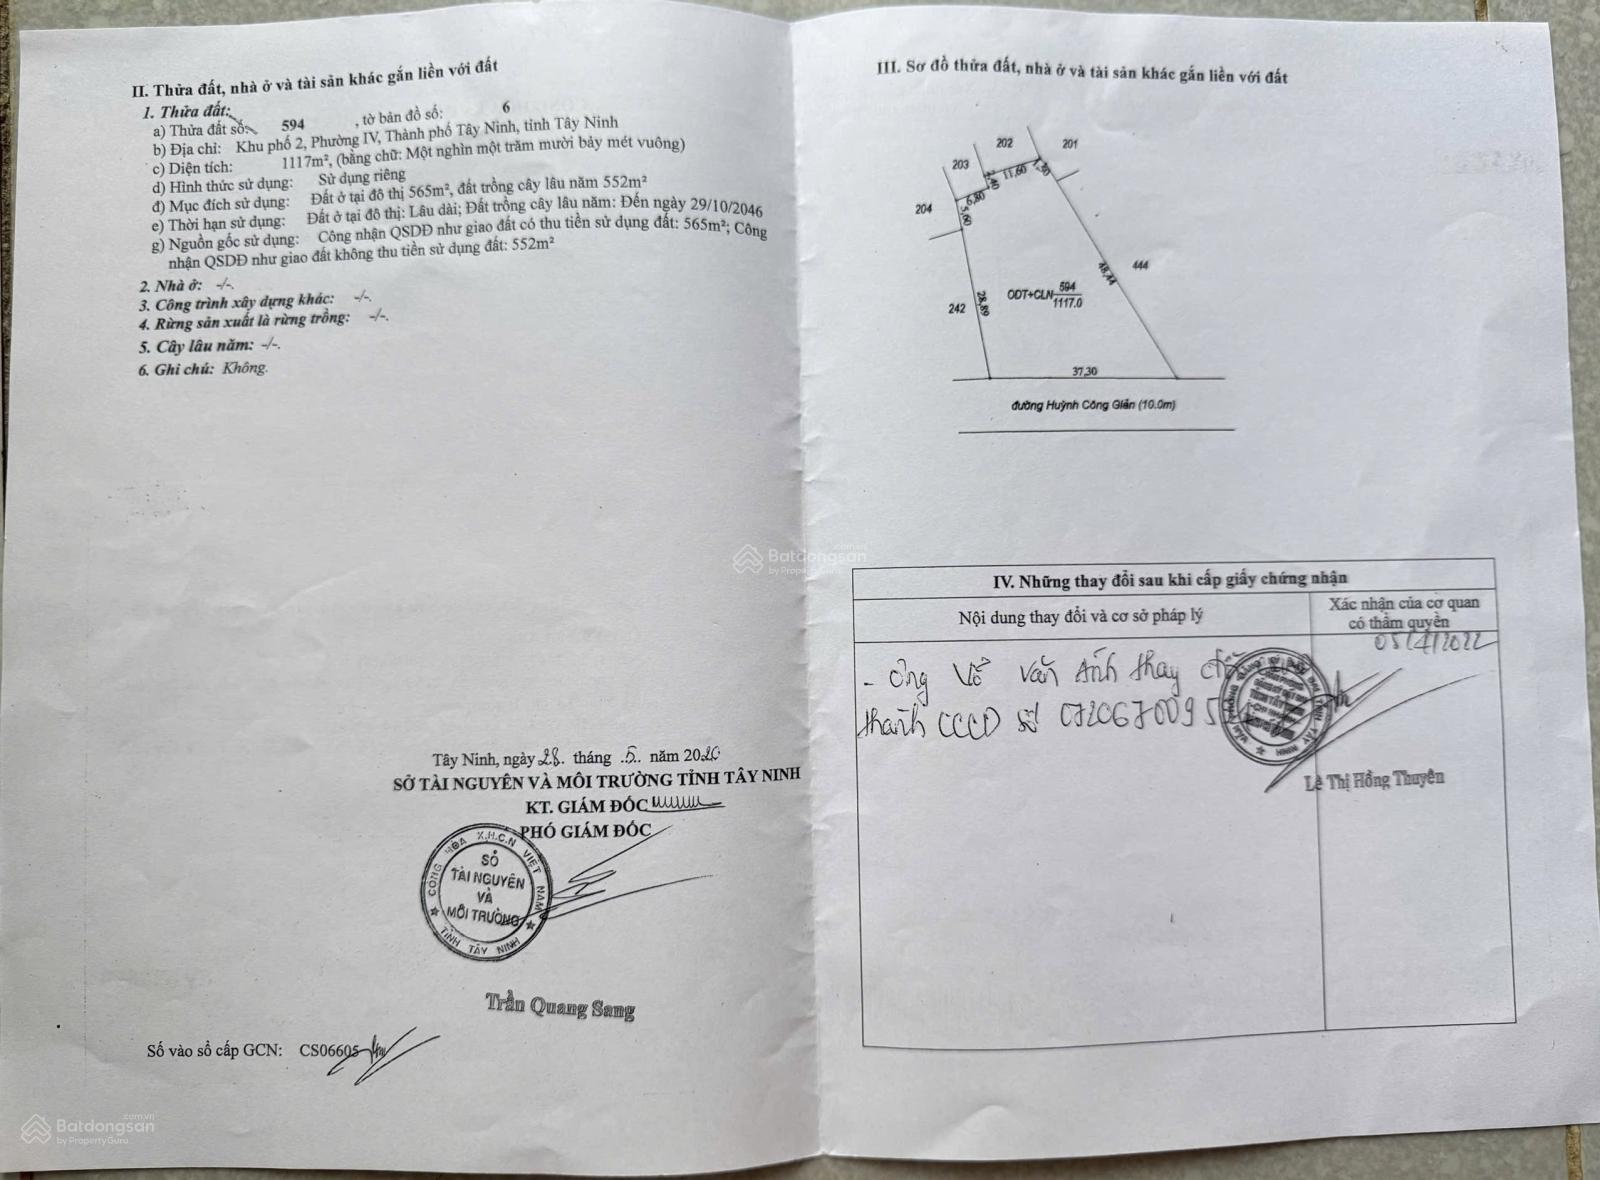 II. Thửa đất, nhà ở và tài sản khác gắn liền với đất
1. Thửa đất:
a) Thửa đất số: 594 , tờ bản đồ số: 6
b) Địa chỉ: Khu phố 2, Phường IV, Thành phố Tây Ninh, tỉnh Tây Ninh
c) Diện tích: 1117m², (bằng chữ: Một nghìn một trăm mười bảy mét vuông)
d) Hình thức sử dụng: Sử dụng riêng
đ) Mục đích sử dụng: Đất ở tại đô thị 565m², đất trồng cây lâu năm 552m²
e) Thời hạn sử dụng: Đất ở tại đô thị: Lâu dài; Đất trồng cây lâu năm: Đến ngày 29/10/2046
g) Nguồn gốc sử dụng: Công nhận QSDĐ như giao đất có thu tiền sử dụng đất: 565m²; Công
nhận QSDĐ như giao đất không thu tiền sử dụng đất: 552m²
2. Nhà ở: -/-.
3. Công trình xây dựng khác: -/-.
4. Rừng sản xuất là rừng trồng: -/-.
5. Cây lâu năm: -/-.
6. Ghi chú: Không.
Tây Ninh, ngày 28. tháng .5.. năm 2020
SỞ TÀI NGUYÊN VÀ MÔI TRƯỜNG TỈNH TÂY NINH
KT. GIÁM ĐỐC
PHÓ GIÁM ĐỐC
CỘNG HÒA X.H.C.N VIỆT NAM
SỞ
TÀI NGUYÊN
VÀ
MÔI TRƯỜNG
TỈNH TÂY NINH
Trần Quang Sang
Số vào sổ cấp GCN: CS06605
III. Sơ đồ thửa đất, nhà ở và tài sản khác gắn liền với đất
202
201
203
11,60
1,80
2,40
6,80
204
5,60
444
48,44
242
28,89
ODT+CLN 594
1117.0
37,30
đường Huỳnh Công Giản (10.0m)
IV. Những thay đổi sau khi cấp giấy chứng nhận
Nội dung thay đổi và cơ sở pháp lý
Xác nhận của cơ quan
có thẩm quyền
05/4/2022
- Ông Võ Văn Ánh thay
thành CCCD số 0720670095
Lê Thị Hồng Thuyên
Batdongsan.com.vn
by PropertyGuru
Batdongsan.com.vn
by PropertyGuru